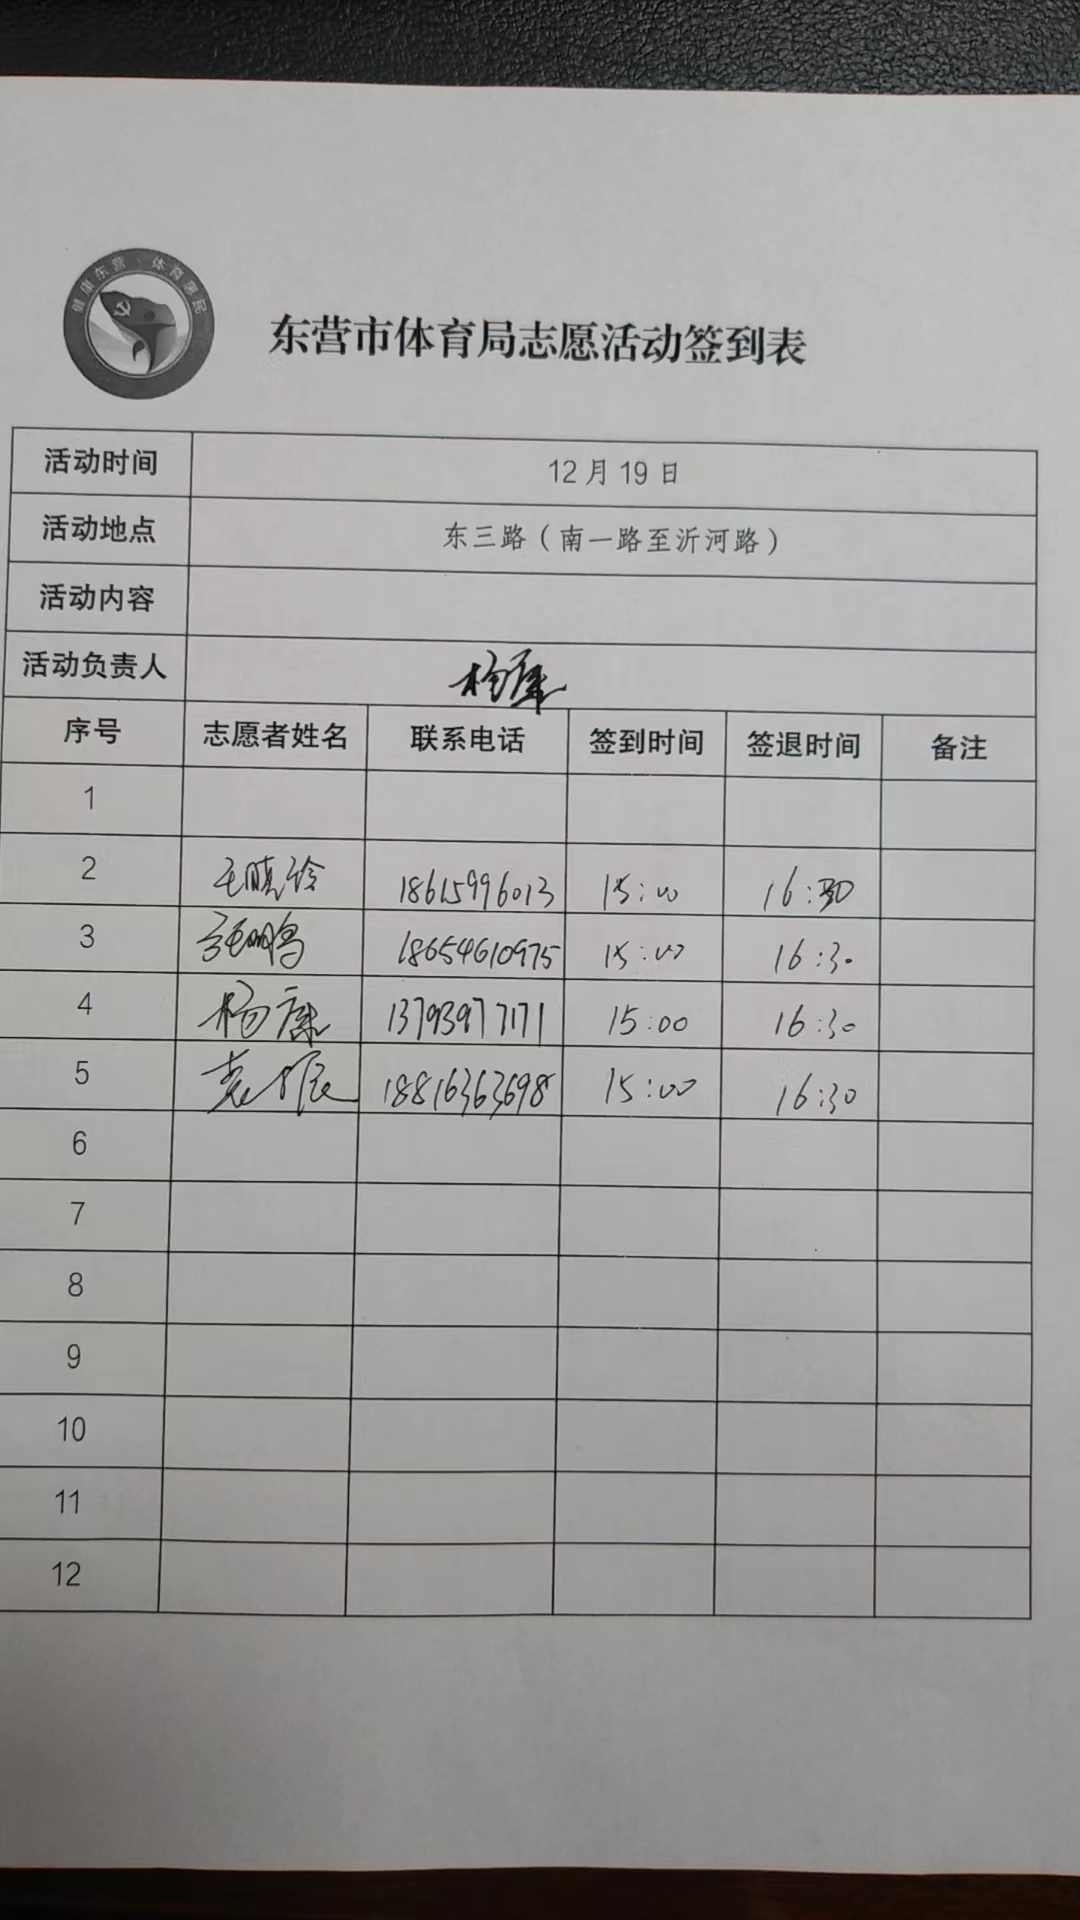 健康东营·体育惠民
东营市体育局志愿活动签到表
活动时间 12月19日
活动地点 东三路（南一路至沂河路）
活动内容
活动负责人 杨康
序号 志愿者姓名 联系电话 签到时间 签退时间 备注
1
2 王晓玲 18615996013 15:00 16:30
3 张鹏 18654610975 15:00 16:30
4 杨康 13793977171 15:00 16:30
5 18816363698 15:00 16:30
6
7
8
9
10
11
12